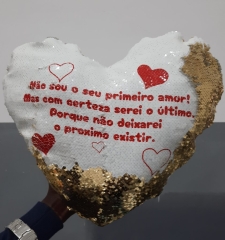 Não sou o seu primeiro amor!
Mas com certeza serei o último.
Porque não deixarei
o proximo existir.